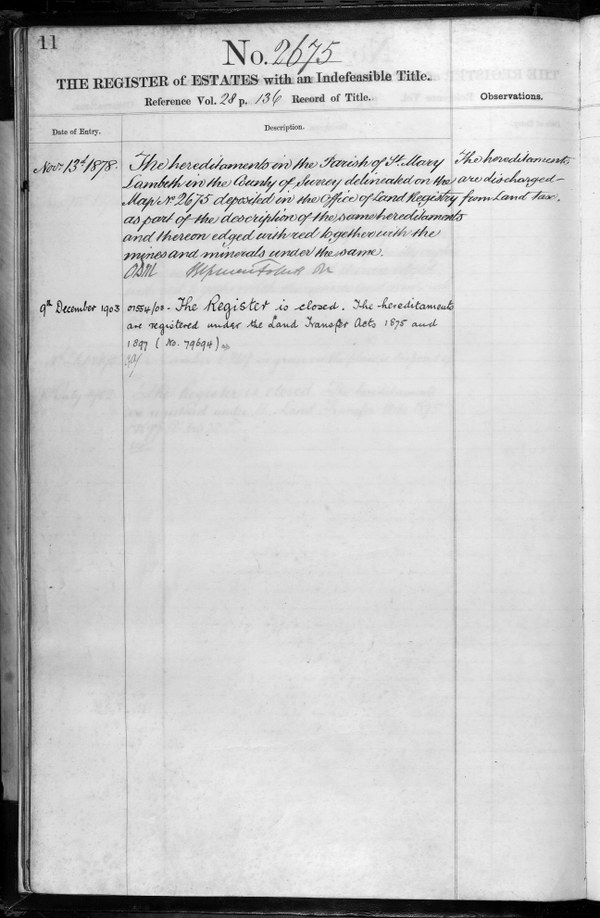 11
No. 2675
THE REGISTER of ESTATES with an Indefeasible Title.
Reference Vol. 28 p. 136 Record of Title.
Observations.
Date of Entry.
Description.
Novr 13th 1878.
The hereditaments in the Parish of St. Mary
Lambeth in the County of Surrey delineated on the
Map No. 2675 deposited in the Office of Land Registry
as part of the description of the same hereditaments
and thereon edged with red together with the
mines and minerals under the same.
The hereditaments
are discharged
from Land Tax.
9th December 1903
The Register is closed. The hereditaments
are registered under the Land Transfer Acts 1875 and
1897 (No. 79694)